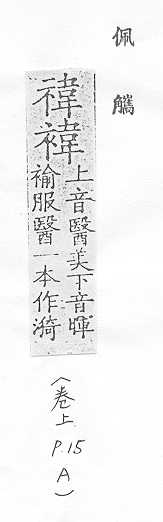 佩觿
禕褘
上音醫美下音暉
褕服醫一本作漪
(卷上 P.15 A)